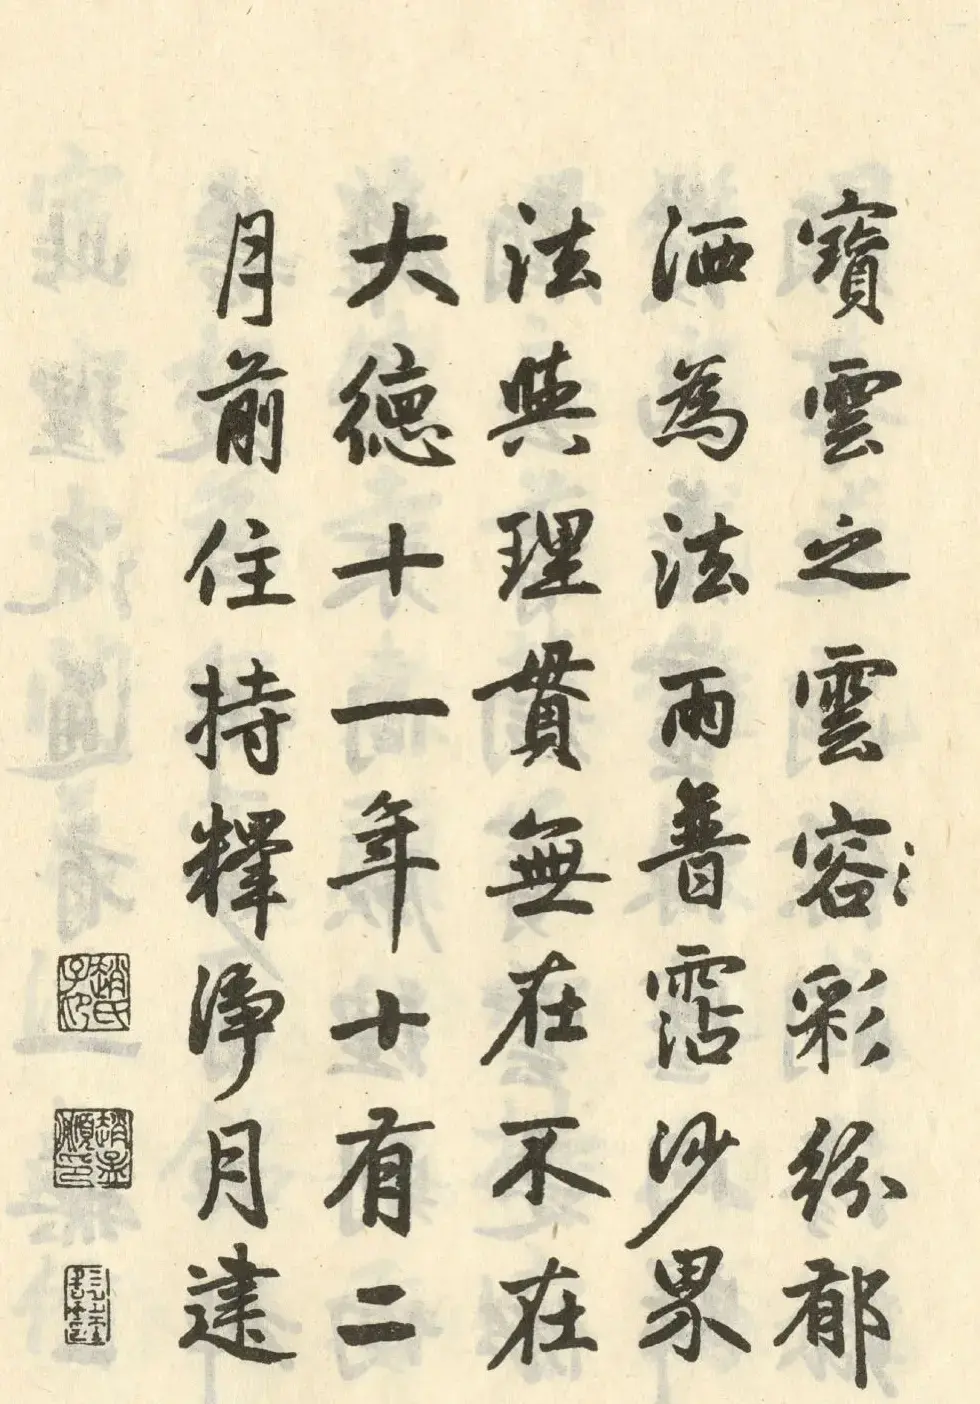 寶雲之雲容彩紛郁
洒為法雨普霑沙界
法與理貫無在不在
大德十一年十有二
月前住持釋淨月建
趙氏子印
趙孟頫印